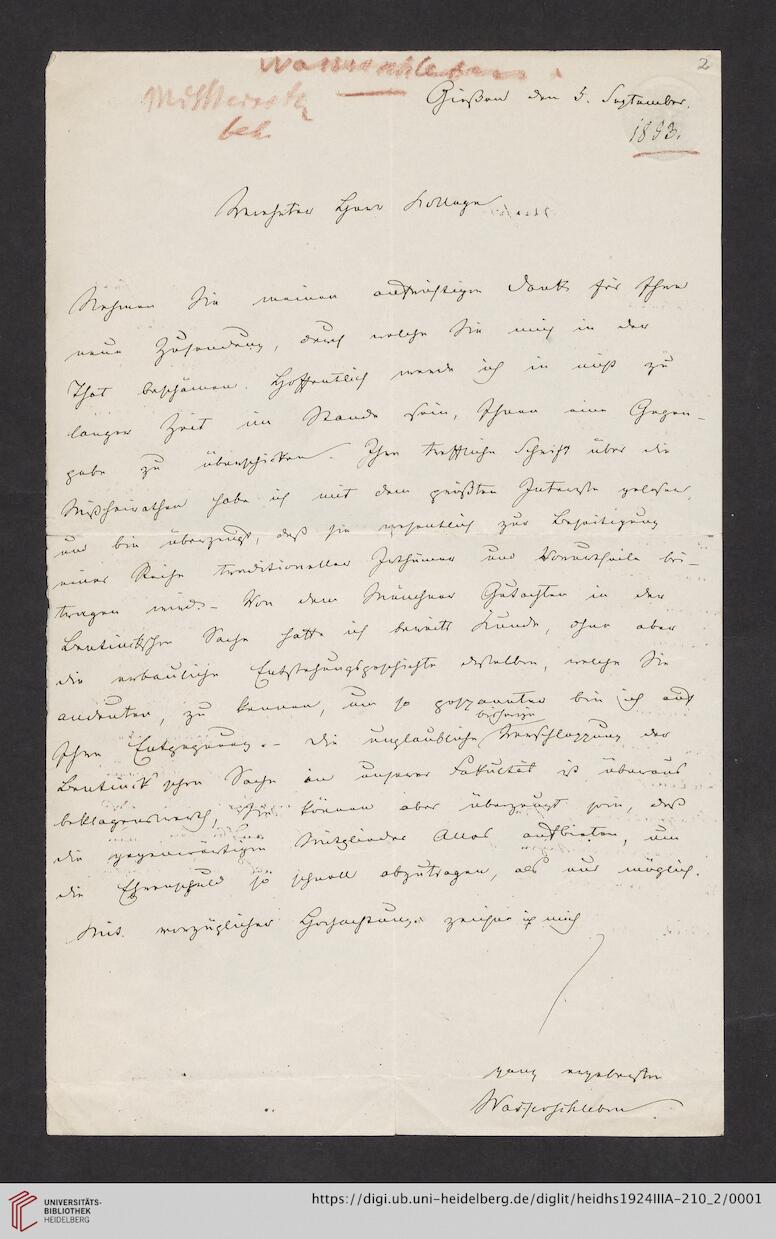 Wasserschleben.
2
Mißheirath
betr.
Gießen den 5. September.
1853.
Verehrter Herr Kollege
Nehmen Sie meinen aufrichtigen Dank für Ihre
neue Zusendung, durch welche Sie mich in der
That beschämen. Hoffentlich werde ich in nicht zu
langer Zeit im Stande sein, Ihnen eine Gegen-
gabe zu überschicken. Ihre treffliche Schrift über die
Mißheirathen habe ich mit dem größten Interesse gelesen,
und bin überzeugt, daß sie wesentlich zur Beseitigung
einer Reihe traditioneller Irthümer und Vorurtheile bei-
tragen wird. - Von dem Münchner Gutachten in der
Bentinckschen Sache hatte ich bereits Kunde, ohne aber
die erbauliche Entstehungsgeschichte desselben, welche Sie
andeuten, zu kennen, um so gespannter bin ich auf
Ihre Entgegnung. - Die unglaubliche bisherige Verschleppung der
Bentinck'schen Sache in unserer Fakultät ist überaus
beklagenswerth, Sie können aber überzeugt sein, daß
die gegenwärtigen Mitglieder Alles aufbieten, um
die Ehrenschuld so schnell abzutragen, als nur möglich.
Mit vorzüglicher Hochachtung zeichne ich mich
ganz ergebenster
Wasserschleben
UNIVERSITÄTS-
BIBLIOTHEK
HEIDELBERG
https://digi.ub.uni-heidelberg.de/diglit/heidhs1924IIIA-210_2/0001